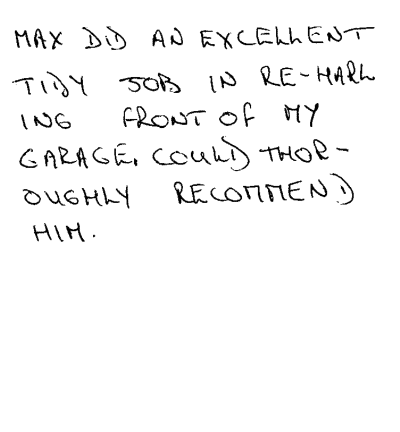 MAX DID AN EXCELLENT
TIDY JOB IN RE-HARL
ING FRONT OF MY
GARAGE. COULD THOR-
OUGHLY RECOMMEND
HIM.